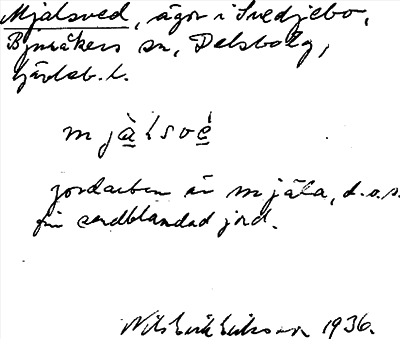 Mjälsved, ägor i Svedjebo,
Bjuråkers sn, Delsbo tg,
Gävleb. l.
m jä̀lsvé
jordarten är mjäla, d.v.s.
fin sandblandad jord.
Nils Erik Eriksson 1936.